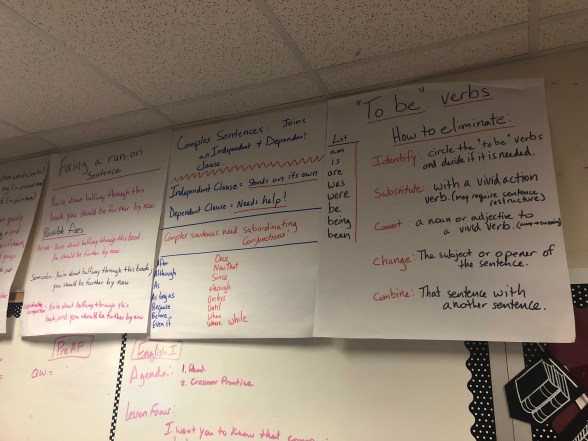 Fixing a run-on
Sentence
You're about halfway through this
book you should be further by now
Possible Fixes
Period - You're about halfway through this book.
You should be further by now
Semicolon - You're about halfway through this book;
you should be further by now
You're about halfway through this
book, and you should be further by now
Complex Sentences Joins
an Independent + Dependent
clause
Independent Clause = Stands on its own
Dependent Clause = Needs help!
Complex sentences need subordinating
Conjunctions:
After
Although
As
As long as
Because
Before
Even if
Once
Now That
Since
though
Unless
Until
When
Where while
"To be" verbs
List
am
is
are
was
were
be
being
been
How to eliminate:
Identify: circle the "to be" verbs
and decide if it is needed.
Substitute: with a vivid action
verb. (may require sentence
restructure)
Convert: a noun or adjective to
a vivid verb.
Change: The subject or opener of
the sentence.
Combine: That sentence with
another sentence.
Pre AP
QW:
English I
Agenda: 1. Read
2. Grammar Practice
Lesson Focus:
I want you to know that